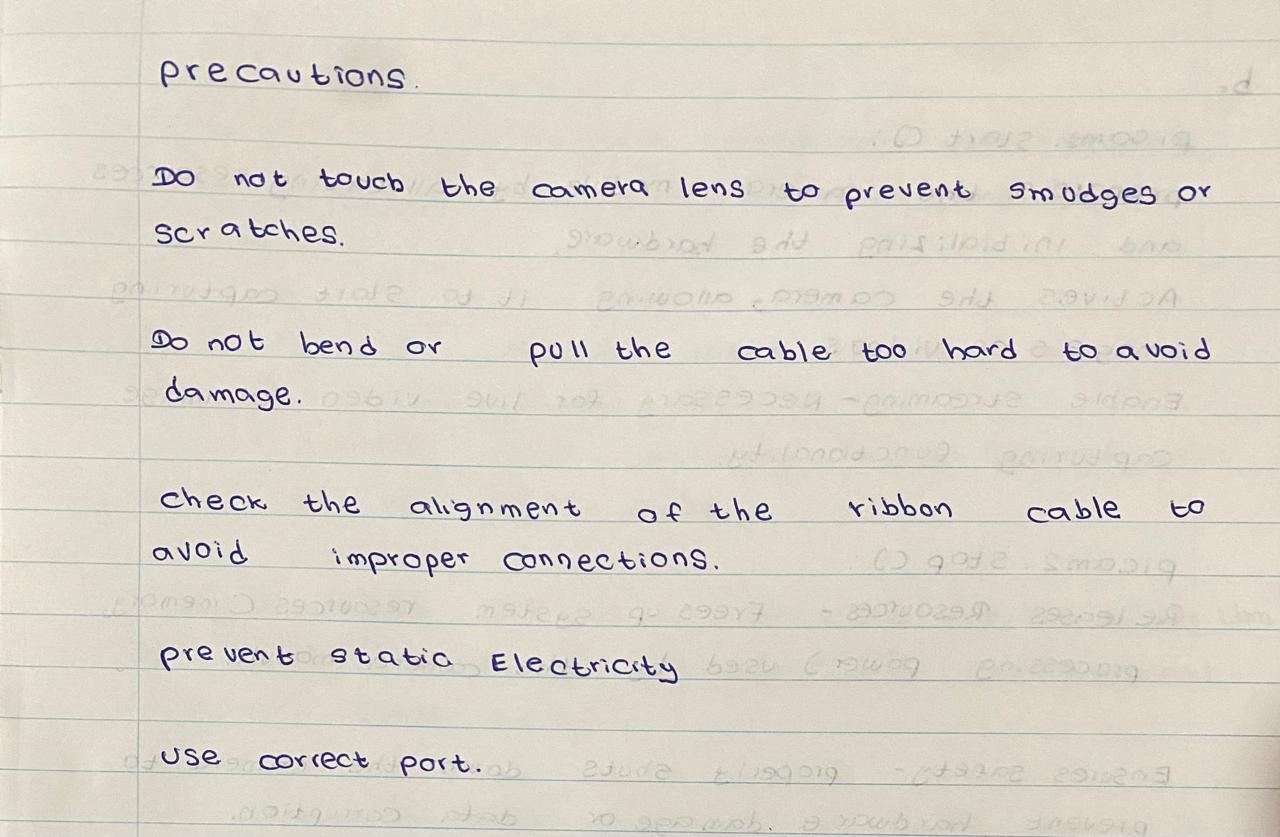 precautions.
Do not touch the camera lens to prevent smudges or
scratches.
Do not bend or pull the cable too hard to avoid
damage.
check the alignment of the ribbon cable to
avoid improper connections.
prevent static Electricity
use correct port.